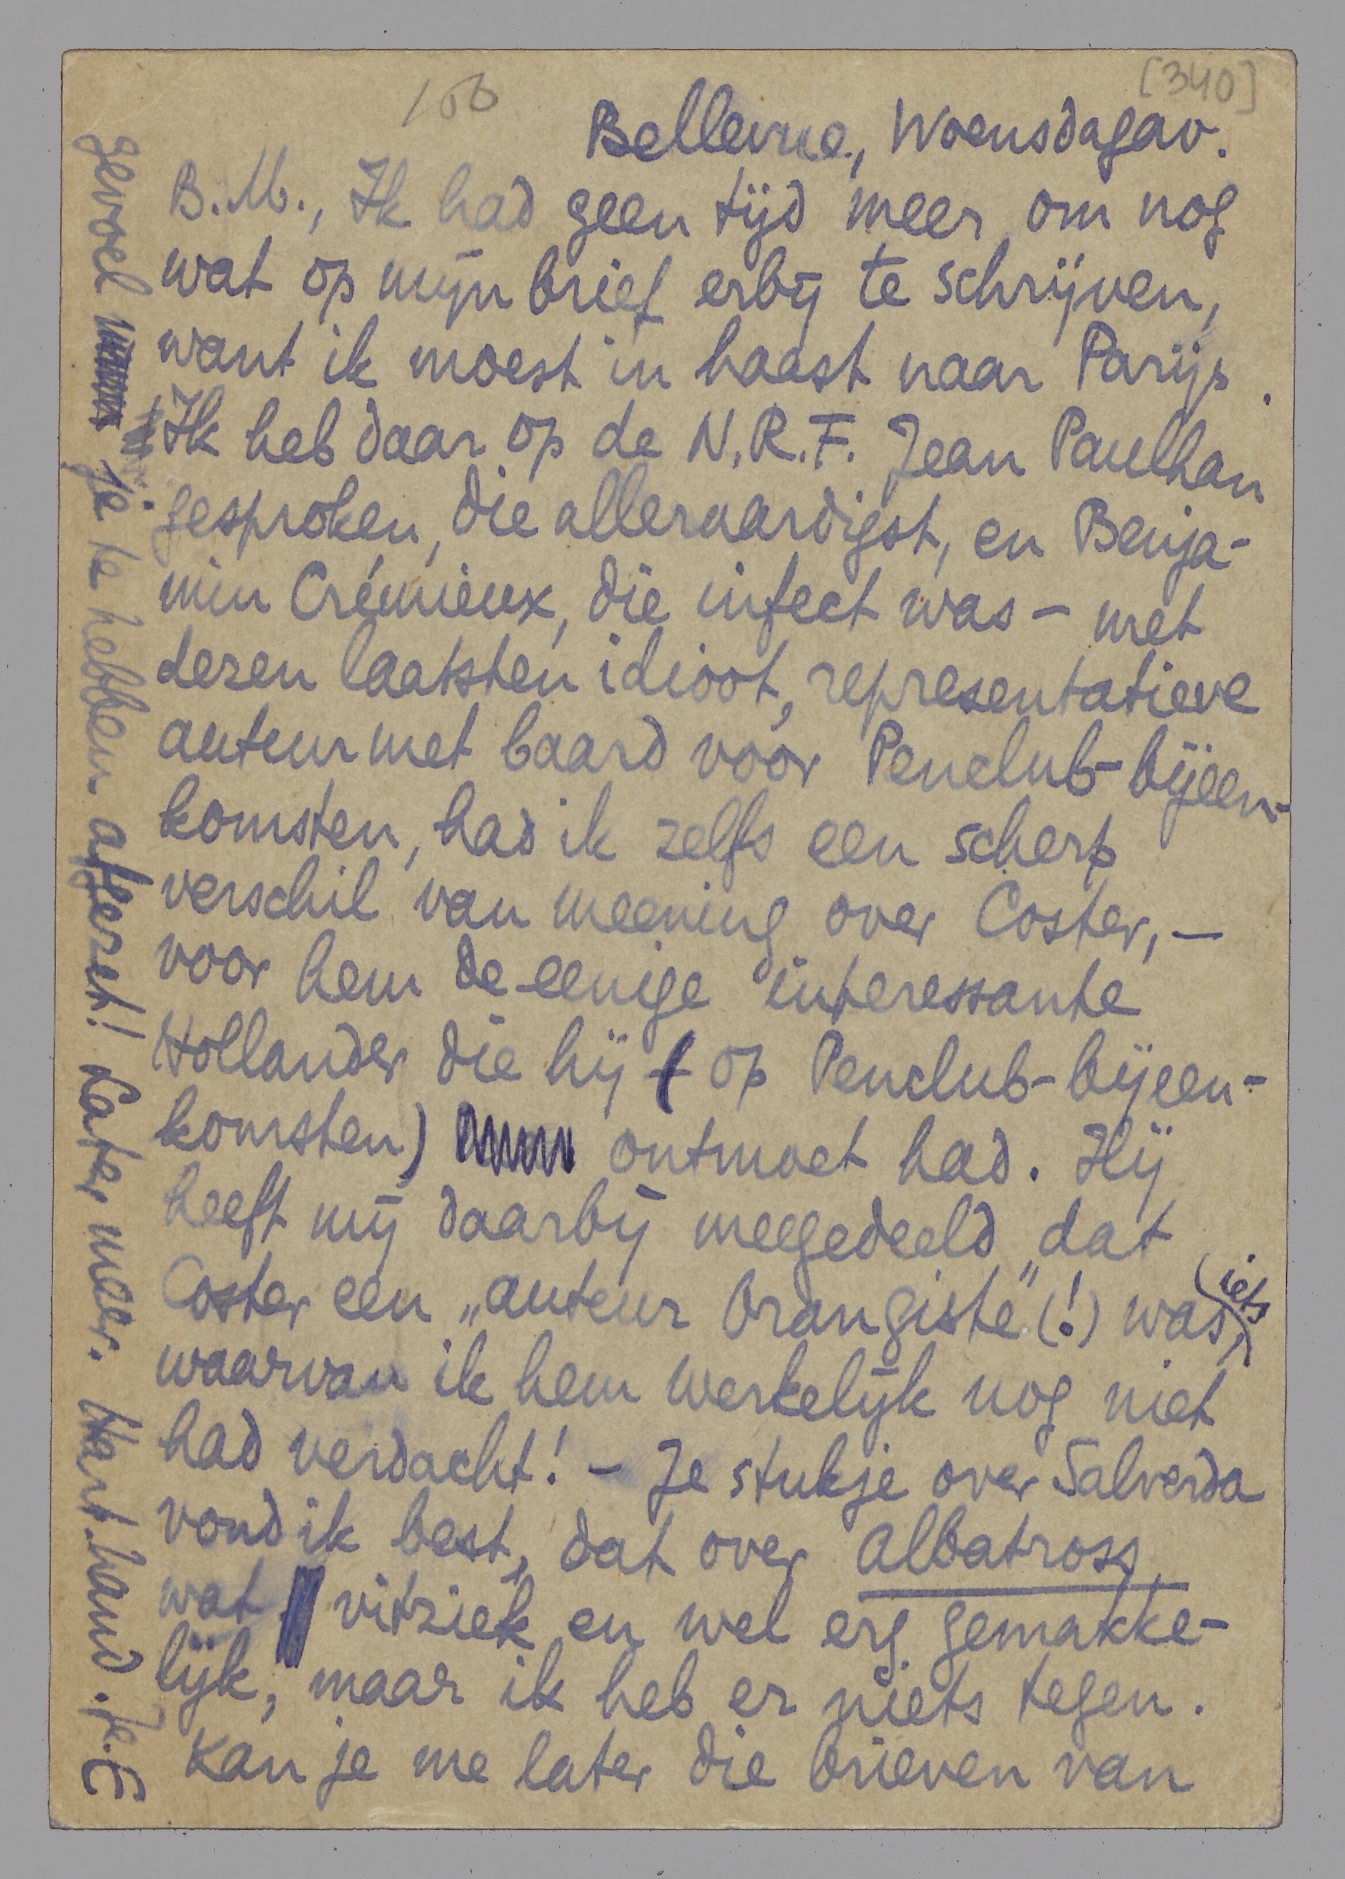 106
[340]
Bellevue, Woensdagav.
B.M., Ik had geen tijd meer om nog
wat op mijn brief erbij te schrijven,
want ik moest in haast naar Parijs.
Ik heb daar op de N.R.F. Jean Paulhan
gesproken, die alleraardigst, en Benja-
min Crémieux, die infect was — met
dezen laatsten idioot, representatieve
auteur met baard voor Penclub-bijeen-
komsten, had ik zelfs een scherp
verschil van meening over Coster, —
voor hem de eenige interessante
Hollander die hij (op Penclub-bijeen-
komsten) ontmoet had. Hij
heeft mij daarbij meegedeeld dat
Coster een „auteur Orangiste” (!) was, (iets
waarvan ik hem werkelijk nog niet
had verdacht! — Je stukje over Salverda
vond ik best, dat over Albatross
wat vitziek en wel erg gemakke-
lijk, maar ik heb er niets tegen.
Kan je me later die brieven van
gevoel je te hebben afgezet! Later meer. Hart. hand. Je E